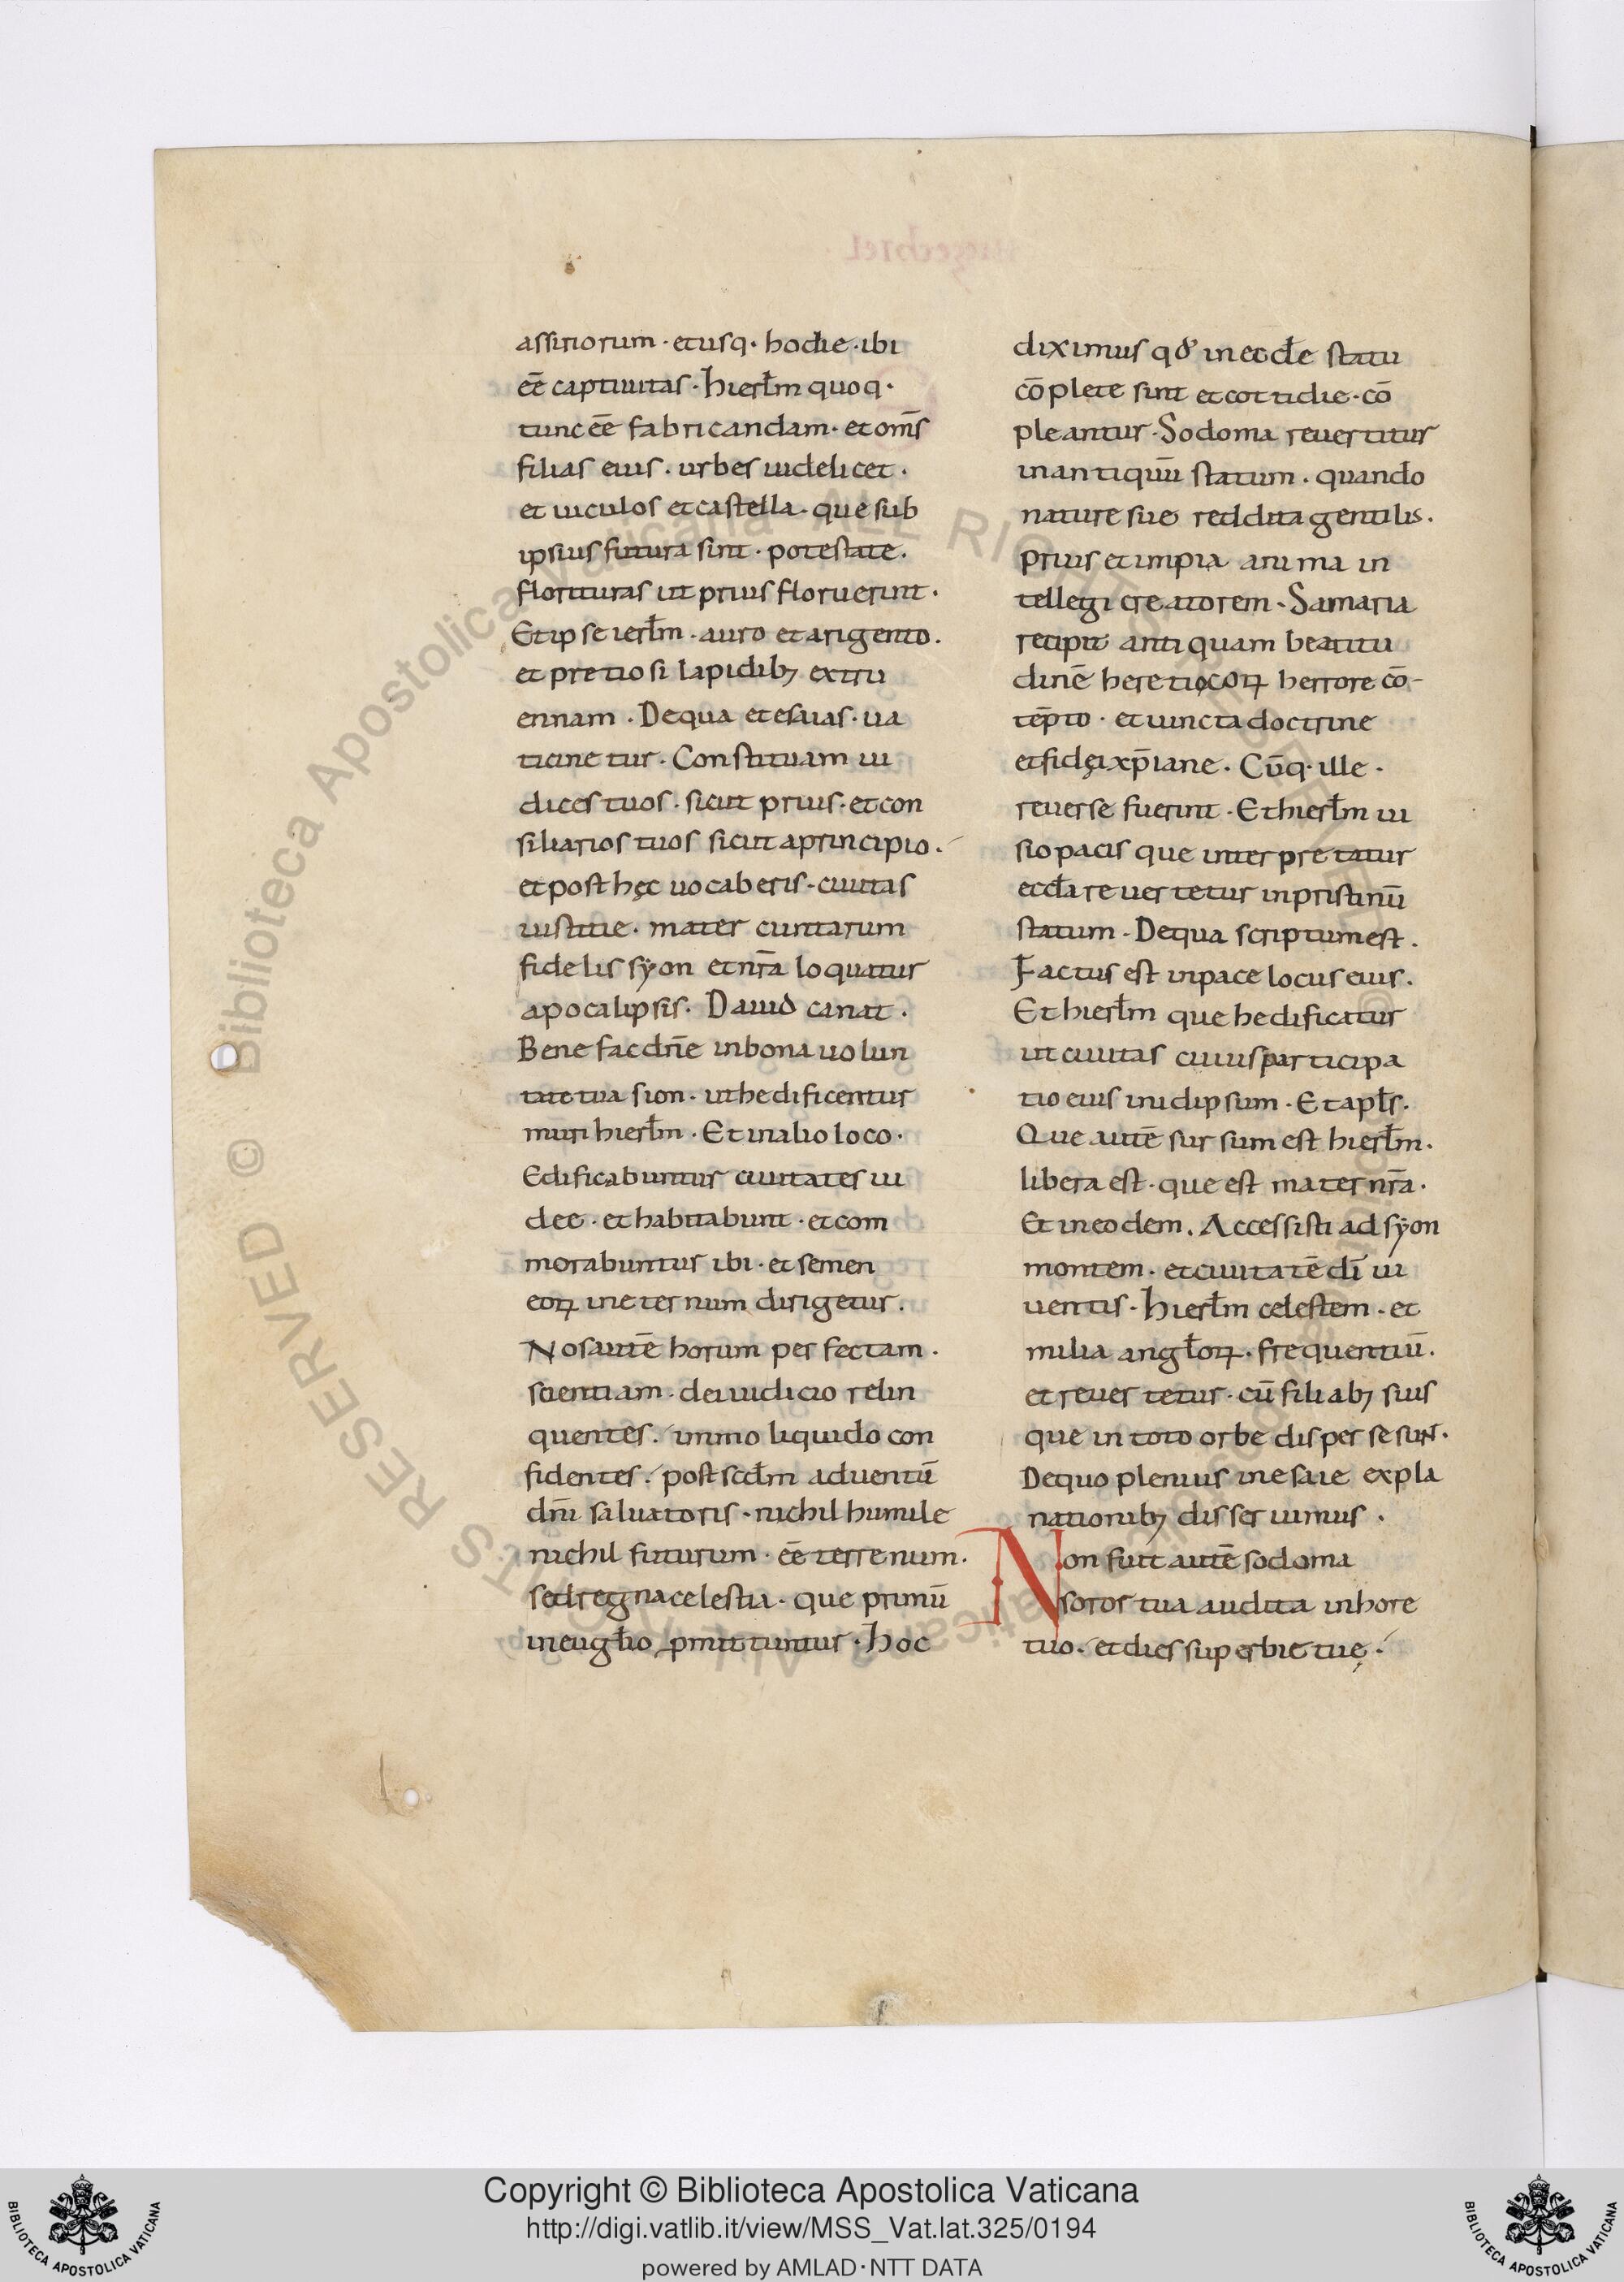 assiriorum · et usq · hodie · ibi
eē captiuitas · hierłm quoq ·
tunc eē fabricandam · et om̄s
filias eius · urbes uidelicet ·
et uiculos et castella · que sub
ipsius futura sint · potestate ·
florituras ut prius floruerint ·
Et ipse ierłm · auro et arigento ·
et pretiosi lapidib; extru
ennam · De qua et esaias · ua
ticinetur · Constituam iu
dices tuos · sicut prius · et con
siliarios tuos sicut a principio ·
et post hęc uocaberis · ciuitas
iustitie · mater ciuitarum
fidelis sẏon et nr̄a loquatur
apocalipsis · Dauid canat ·
Bene fac dn̄e in bona uolun
tate tua sion · ut hedificentur
muri hierłm · Et in alio loco ·
Edificabuntur ciuitates iu
dee · et habitabunt · et com
morabuntur ibi · et semen
eoꝝ in eternum dirigetur ·
Nos autē horum perfectam ·
scientiam · dei iudicio relin
quentes · immo liquido con
fidentes · post scdm̄ aduentū
dn̄i saluatoris · nichil humile
nichil futurum · eē terrenum ·
sed regna celestia · que primū
in euglio ꝓmittuntur · hoc
diximus qđ in eccłe statu
cōplete sint et cottidie · cō
pleantur · Sodoma reuertitur
in antiquū statum · quando
nature sue reddita gentilis ·
prius et impia anima in
tellegi creatorem · Samaria
recipit antiquam beatitu
dinē heretiocoꝝ herrore cō-
tēpto · et iuncta doctrine
et fidęi xp̄iane · Cūq · ille ·
reuerse fuerint · Et hierłm ui
sio pacis que interpretatur
eccła reuertetur in pristinū
statum · De qua scriptum est ·
Factus est in pace locus eius ·
Et hierłm que hedificatur
ut ciuitas cuius participa
tio eius in idipsum · Et apłs ·
Que autē sursum est hierłm ·
libera est · que est mater nr̄a ·
Et in eodem · Accessisti ad sẏon
montem · et ciuitatē dī ui
uentis · hierłm celestem · et
milia angłoꝝ · frequentiū ·
et reuertetur · cū filiab; suis
que in toto orbe disperse sunt ·
De quo plenius in esaie expla
nationib; disseruimus ·
Non fuit autē sodoma
soror tua audita in hore
tuo · et dies superbie tuę ·
Copyright © Biblioteca Apostolica Vaticana
http://digi.vatlib.it/view/MSS_Vat.lat.325/0194
powered by AMLAD · NTT DATA
BIBLIOTECA APOSTOLICA VATICANA
BIBLIOTECA APOSTOLICA VATICANA